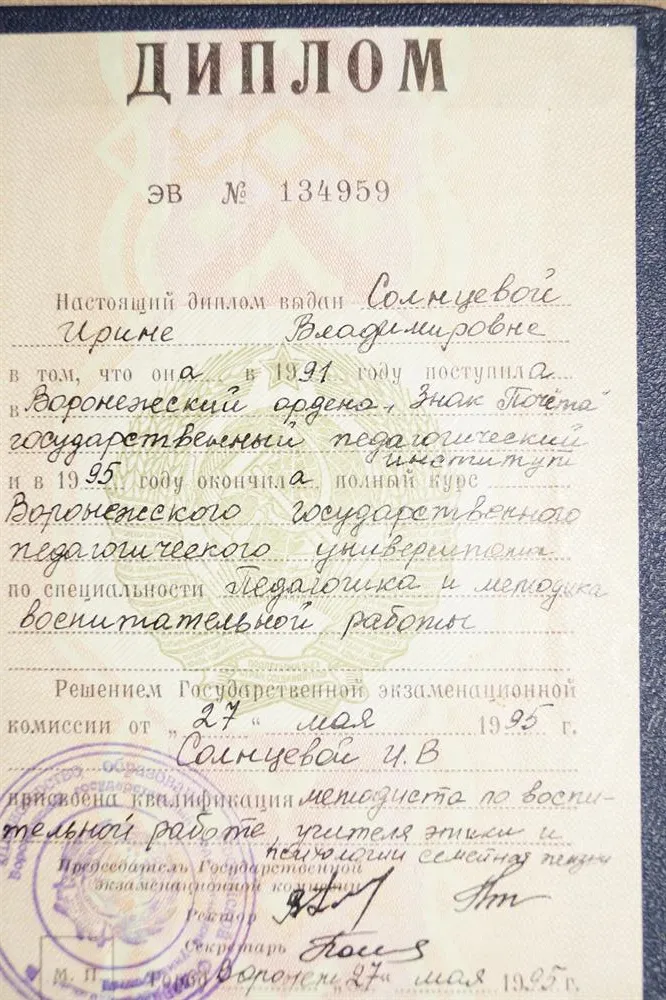 ДИПЛОМ
ЭВ № 134959
Настоящий диплом выдан Солнцевой
Ирине Владимировне
в том, что она в 1991 году поступила
в Воронежский ордена „Знак Почёта"
государственный педагогический
институт
и в 1995 году окончила полный курс
Воронежского государственного
педагогического университета
по специальности Педагогика и методика
воспитательной работы
Решением Государственной экзаменационной
комиссии от „27" мая 1995 г.
Солнцевой И.В
присвоена квалификация методиста по воспи-
тельной работе, учителя этики и
психологии семейной жизни
Председатель Государственной
экзаменационной комиссии
Ректор
Секретарь
М. П
Город Воронеж „27" мая 1995 г.